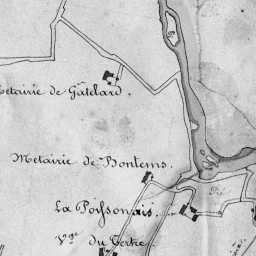 etairie de Gâtelard.
Metairie de Bontems.
La Poissonais.
V.ge du Tertre.